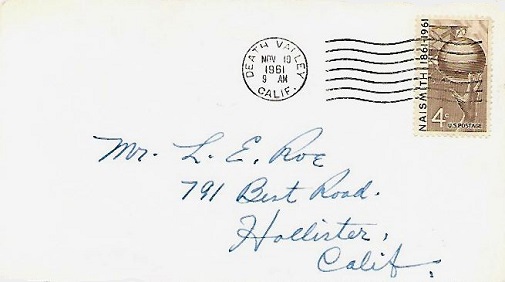 DEATH VALLEY
NOV 10
1961
9 AM
CALIF.
NAISMITH 1861-1961
4c
U.S. POSTAGE
Mr. L. E. Roe
791 Best Road.
Hollister,
Calif.